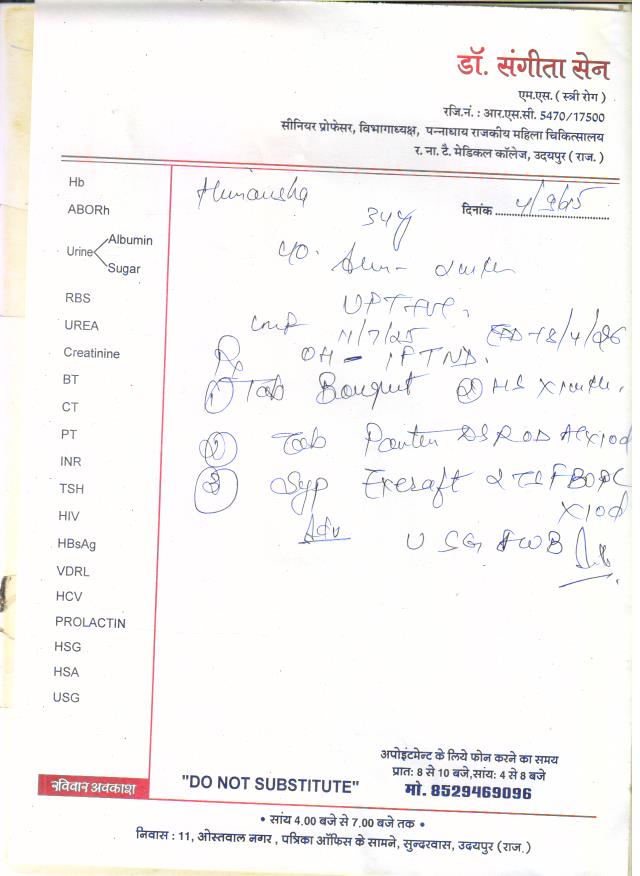 डॉ. संगीता सेन
एम.एस. ( स्त्री रोग )
रजि.नं. : आर.एस.सी. 5470/17500
सीनियर प्रोफेसर, विभागाध्यक्ष, पन्नाधाय राजकीय महिला चिकित्सालय
र. ना. टै. मेडिकल कॉलेज, उदयपुर ( राज. )
Hb
ABORh
Urine Albumin
Sugar
RBS
UREA
Creatinine
BT
CT
PT
INR
TSH
HIV
HBsAg
VDRL
HCV
PROLACTIN
HSG
HSA
USG
दिनांक
34y
UPT +ve
LMP 11/7/25 EDD 18/4/26
Rx OH - 1FTND
① Tab
② Tab DSR OD AC x 10d
③ Syp 2 TSF BD PC
x 10d
Adv
USG FWB
अपोइंटमेन्ट के लिये फोन करने का समय
प्रात: 8 से 10 बजे,सांय: 4 से 8 बजे
मो. 8529469096
रविवार अवकाश
"DO NOT SUBSTITUTE"
• सांय 4.00 बजे से 7.00 बजे तक •
निवास : 11, ओस्तवाल नगर , पत्रिका ऑफिस के सामने, सुन्दरवास, उदयपुर (राज.)